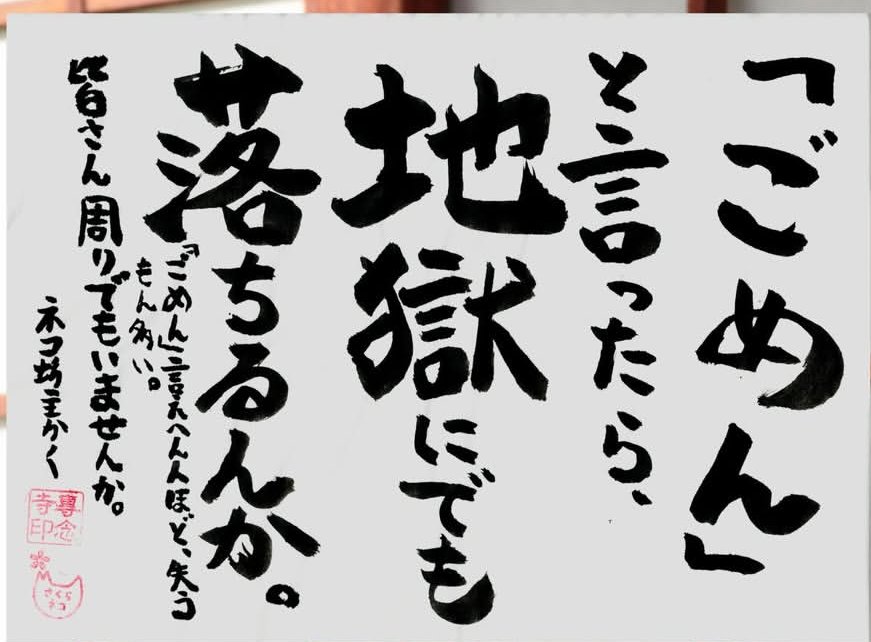 「ごめん」
と言ったら、
地獄にでも
落ちるんか。
「ごめん」言えへん人ほど、失う
もん多い。
皆さん周りでもいませんか。
ネコ坊主かく
專念
寺印
さくら
ネコ